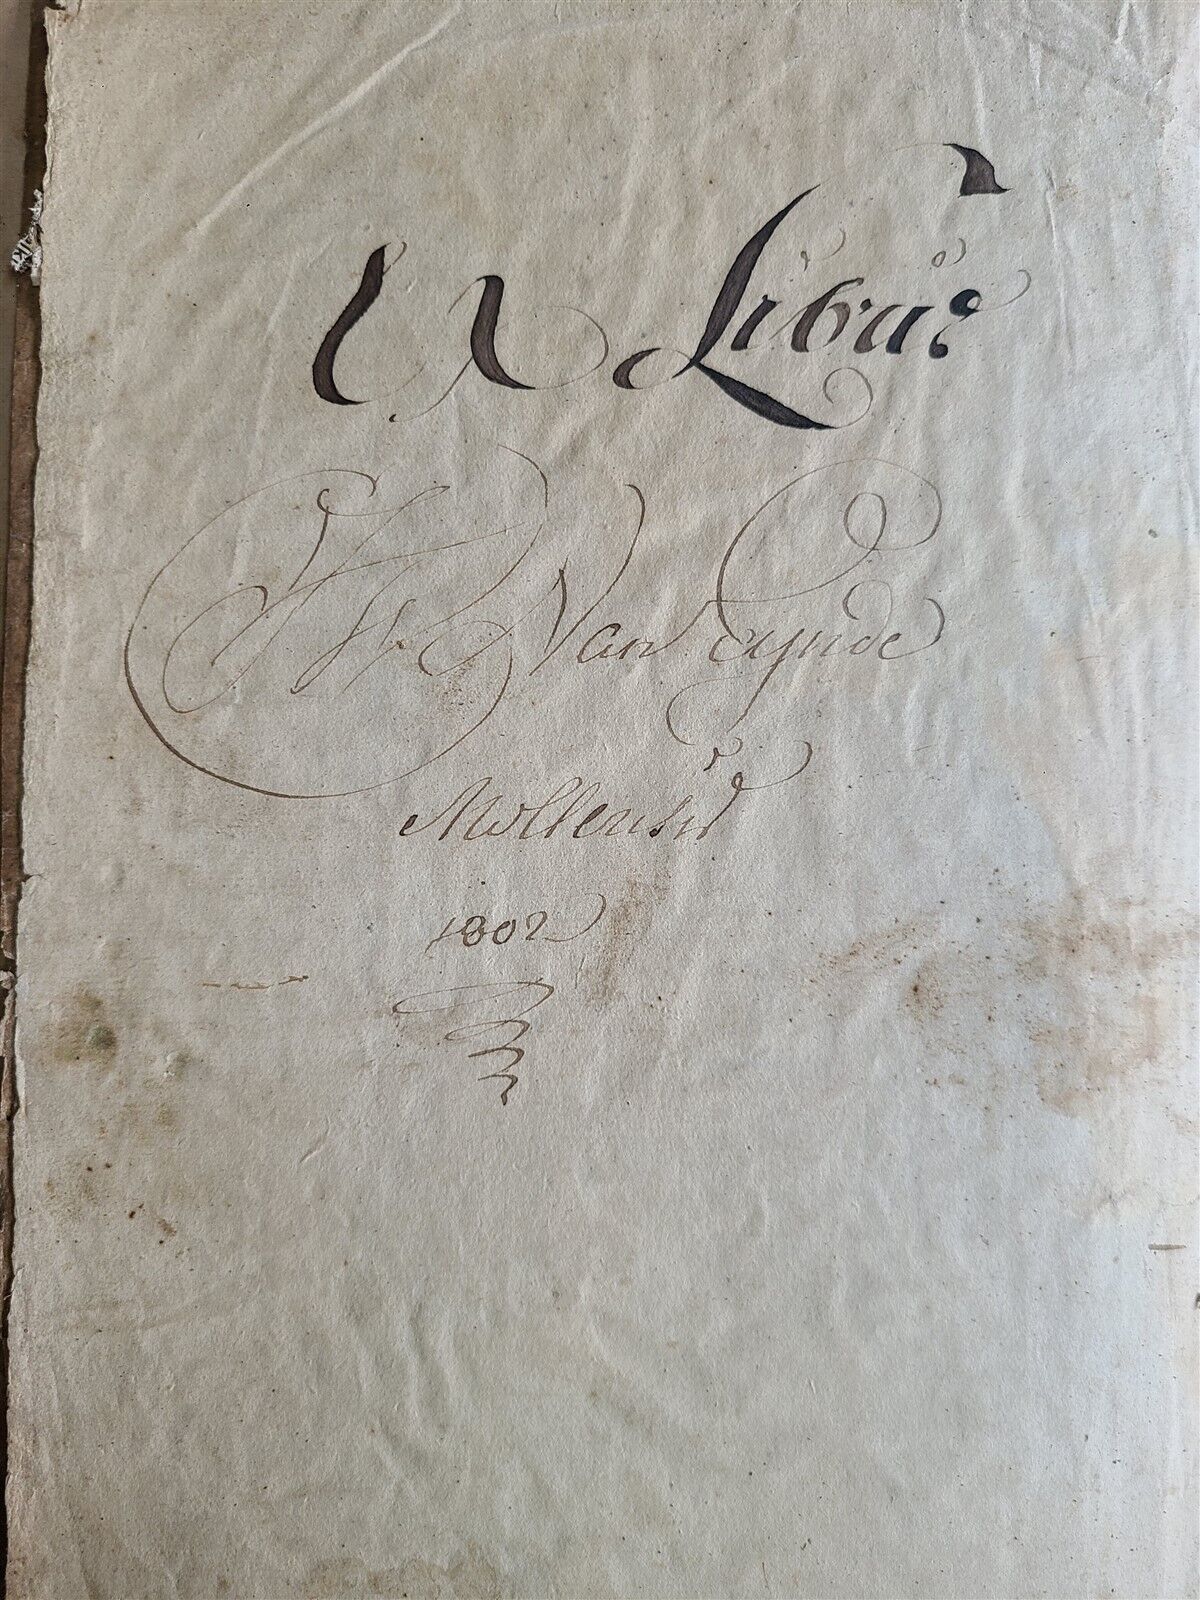 Ex Libris
Van Eynde
Mollensis
1802